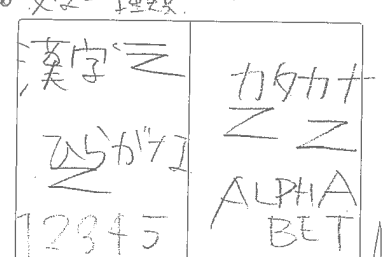 漢字
ひらがな
12345
カタカナ
ALPHA
BET